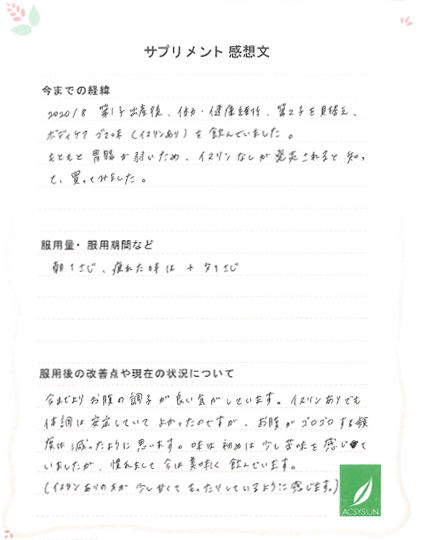 サプリメント 感想文
今までの経緯
2020/8 第1子出産後、体力・健康維持、第2子を見据え、
ボディケア ゴマ味(イヌリンあり)を飲んでいました。
もともと胃腸が弱いため、イヌリンなしが発売されると知っ
て、買ってみました。
服用量・服用期間など
朝1さじ、疲れた時は + 夕1さじ
服用後の改善点や現在の状況について
今までよりお腹の調子が良い気がしています。イヌリンありでも
体調は安定していてよかったのですが、お腹がゴロゴロする頻
度は減ったように思います。味は初めは少し苦味を感じて
いましたが、慣れまして今は美味しく飲んでいます。
(イヌリンありの方が少し甘くてもったりしているように感じます。)
ACSYSUN